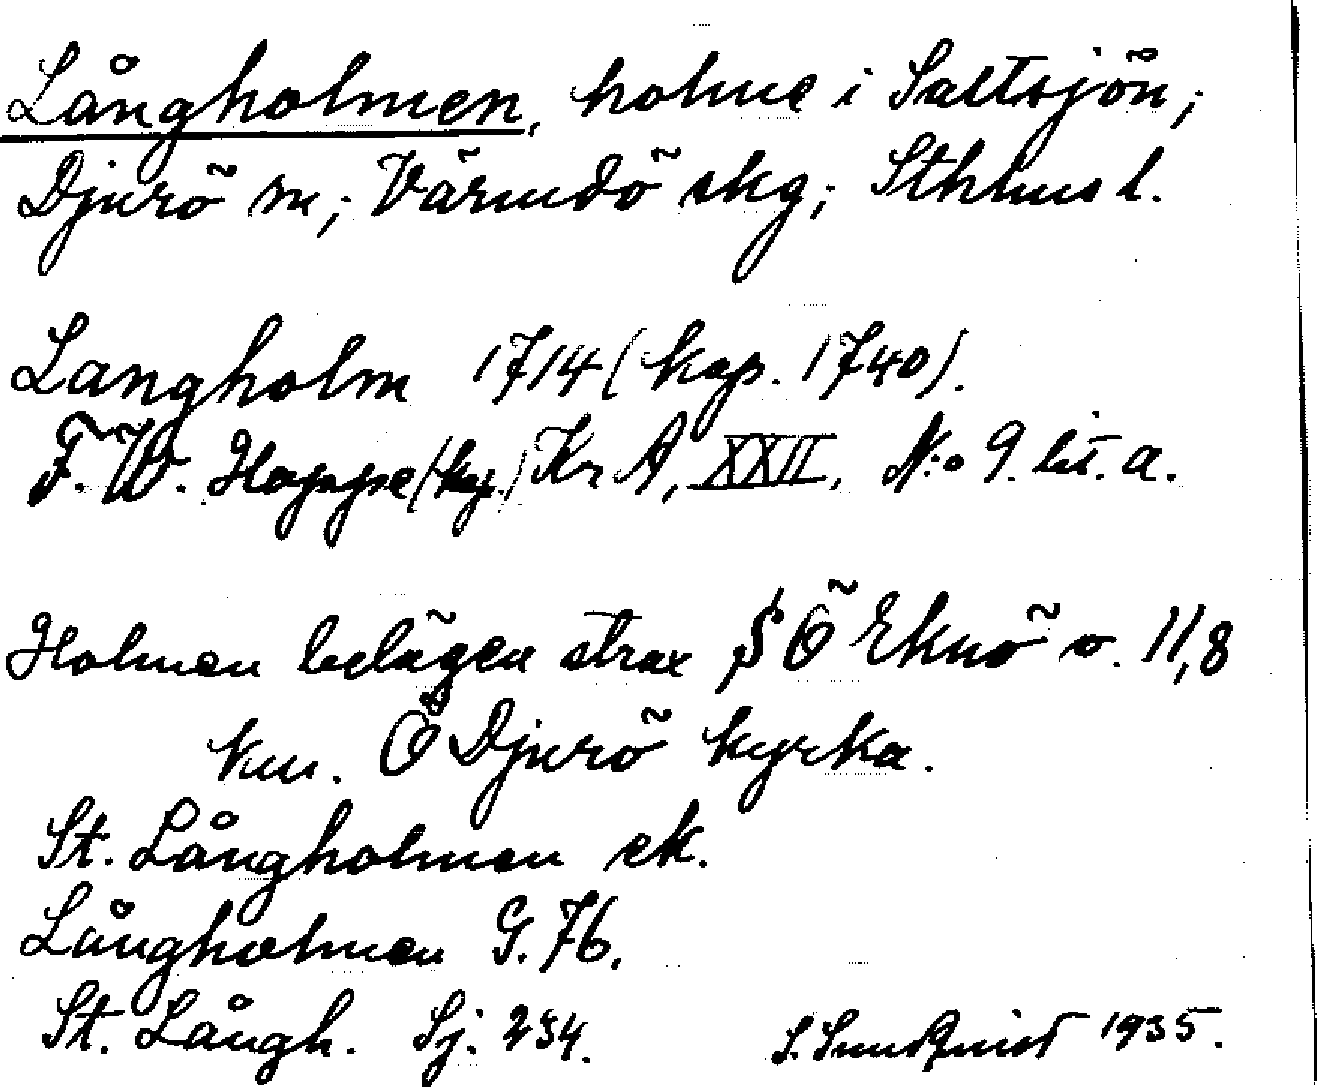 Långholmen, holme i Saltsjön;
Djurö sn; Värmdö skg; Sthlms l.
Langholm 1714 (kop. 1740).
F. W. Hoppe (kop.) Kr A, XXII, N:o 9. lit. a.
Holmen belägen strax S Ö Eknö o. 11,8
km. Ö Djurö kyrka.
St. Långholmen ek.
Långholmen G. 76.
St. Långh. Sj. 234. S. Sundqvist 1935.